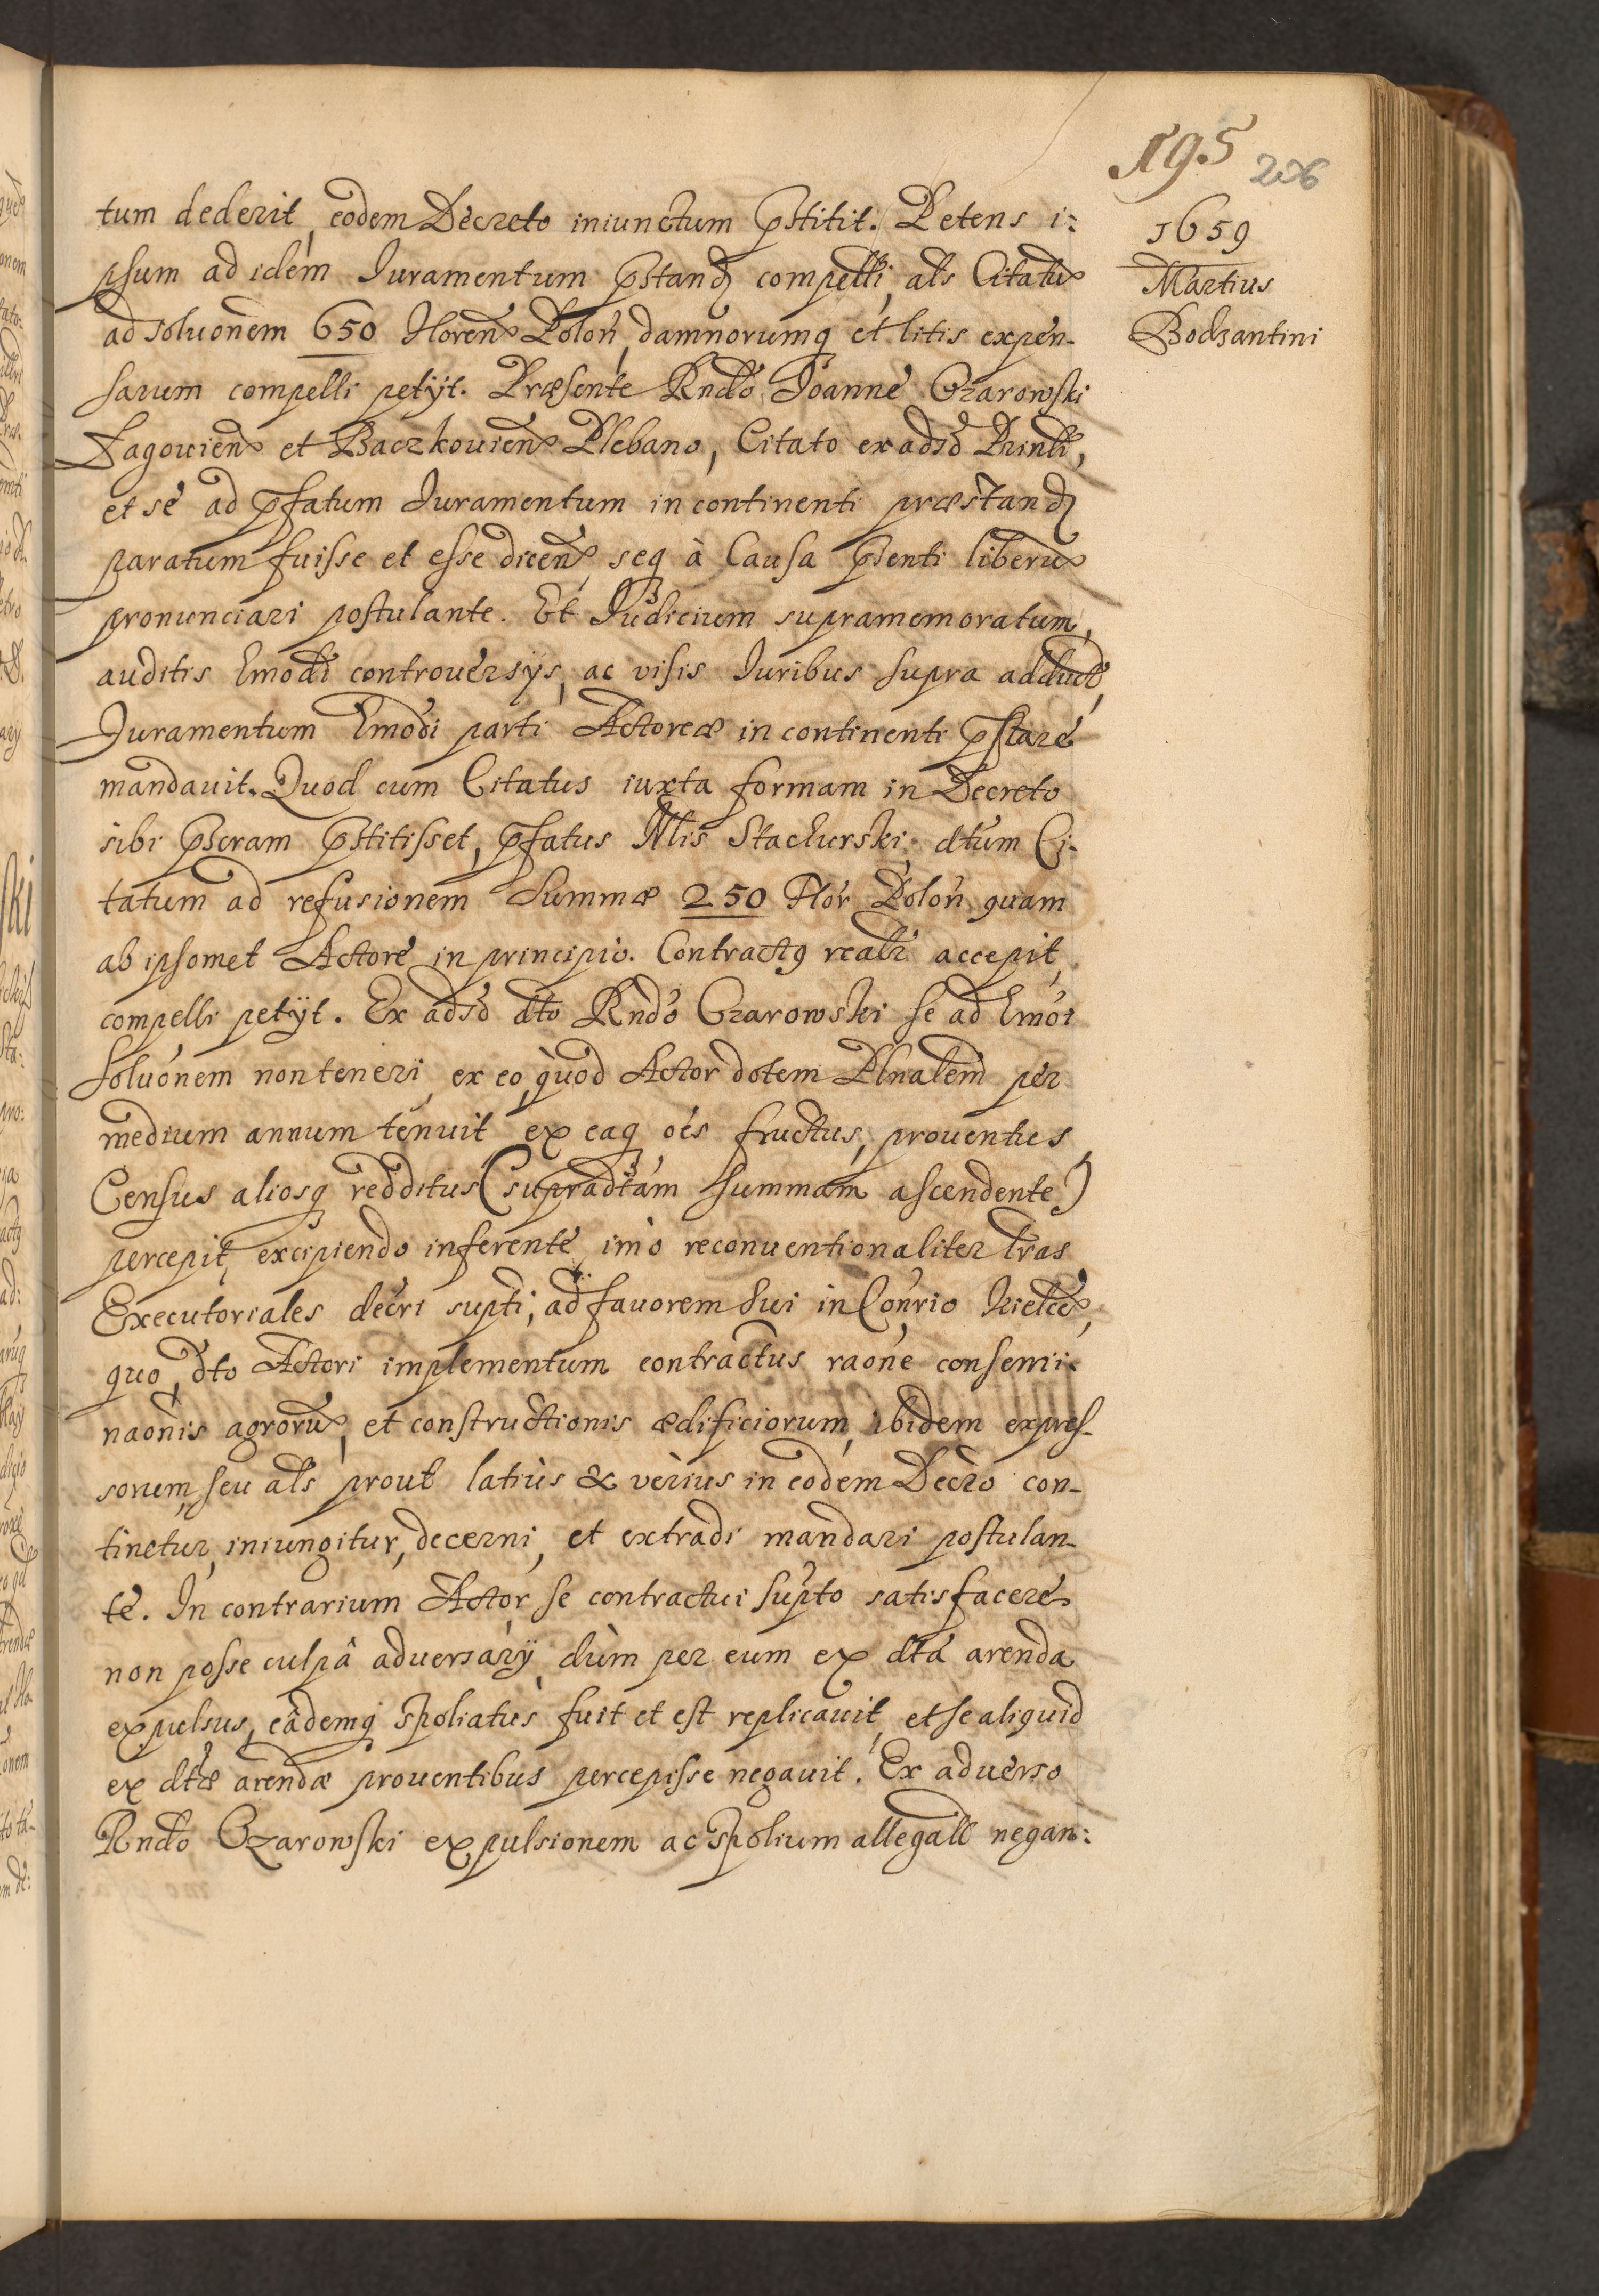 195 206
1659
Martius
Bodzantini
tum dederit, eodem Decreto iniunctum pstitit. Petens i:
psum ad idem Iuramentum pstand compelli, als Citatu
ad soluonem 650 Floren Polon, damnorumq et litis expen-
sarum compelli petÿt. Præsente Rndo Joanne Czarowski
Łagouien et Baczkouien Plebano, Citato ex adsd Prinli,
et se ad pfatum Iuramentum in continenti præstand
paratum fuisse et esse dicen, seq à Causa psenti liberu
pronunciari postulante. Et Iudicium supramemoratum,
auditis hmodi controuersÿs, ac visis Iuribus supra adduct,
Iuramentum hmodi parti Actoreæ in continenti pstare
mandauit. Quod cum Citatus iuxta formam in Decreto
sibi pscram pstitisset, pfatus Nlis Stachurski dtum Ci-
tatum ad refusionem Summæ 250 Flor Polon quam
ab ipsomet Actore in principio Contractq reali accepit,
compelli petÿt. Ex adsd dto Rndo Czarowski se ad hmoi
soluonem non teneri, ex eo, quod Actor dotem Plnalem per
medium annum tenuit ex eaq oes fructus, prouentus
Census aliosq redditus (supradtam summam ascendente)
percepit, excipiendo inferente, imo reconuentionaliter lras
Executoriales decri supti, ad fauorem sui in Conrio Kielce,
quo, dto Actori implementum contractus raone consemi-
naonis agroru, et constructionis ædificiorum, ibidem expres-
sorum, seu als prout latius & verius in eodem Decro con-
tinetur, iniungitur, decerni, et extradi mandari postulan-
te. In contrarium Actor se contractui supto satisfacere
non posse culpâ aduersarÿ, dùm per eum ex dta arenda
expulsus, eâdemq spoliatus fuit et est replicauit, et se aliquid
ex dtæ arendæ prouentibus percepisse negauit. Ex aduerso
Rndo Czarowski expulsionem ac spolium allegall negan: